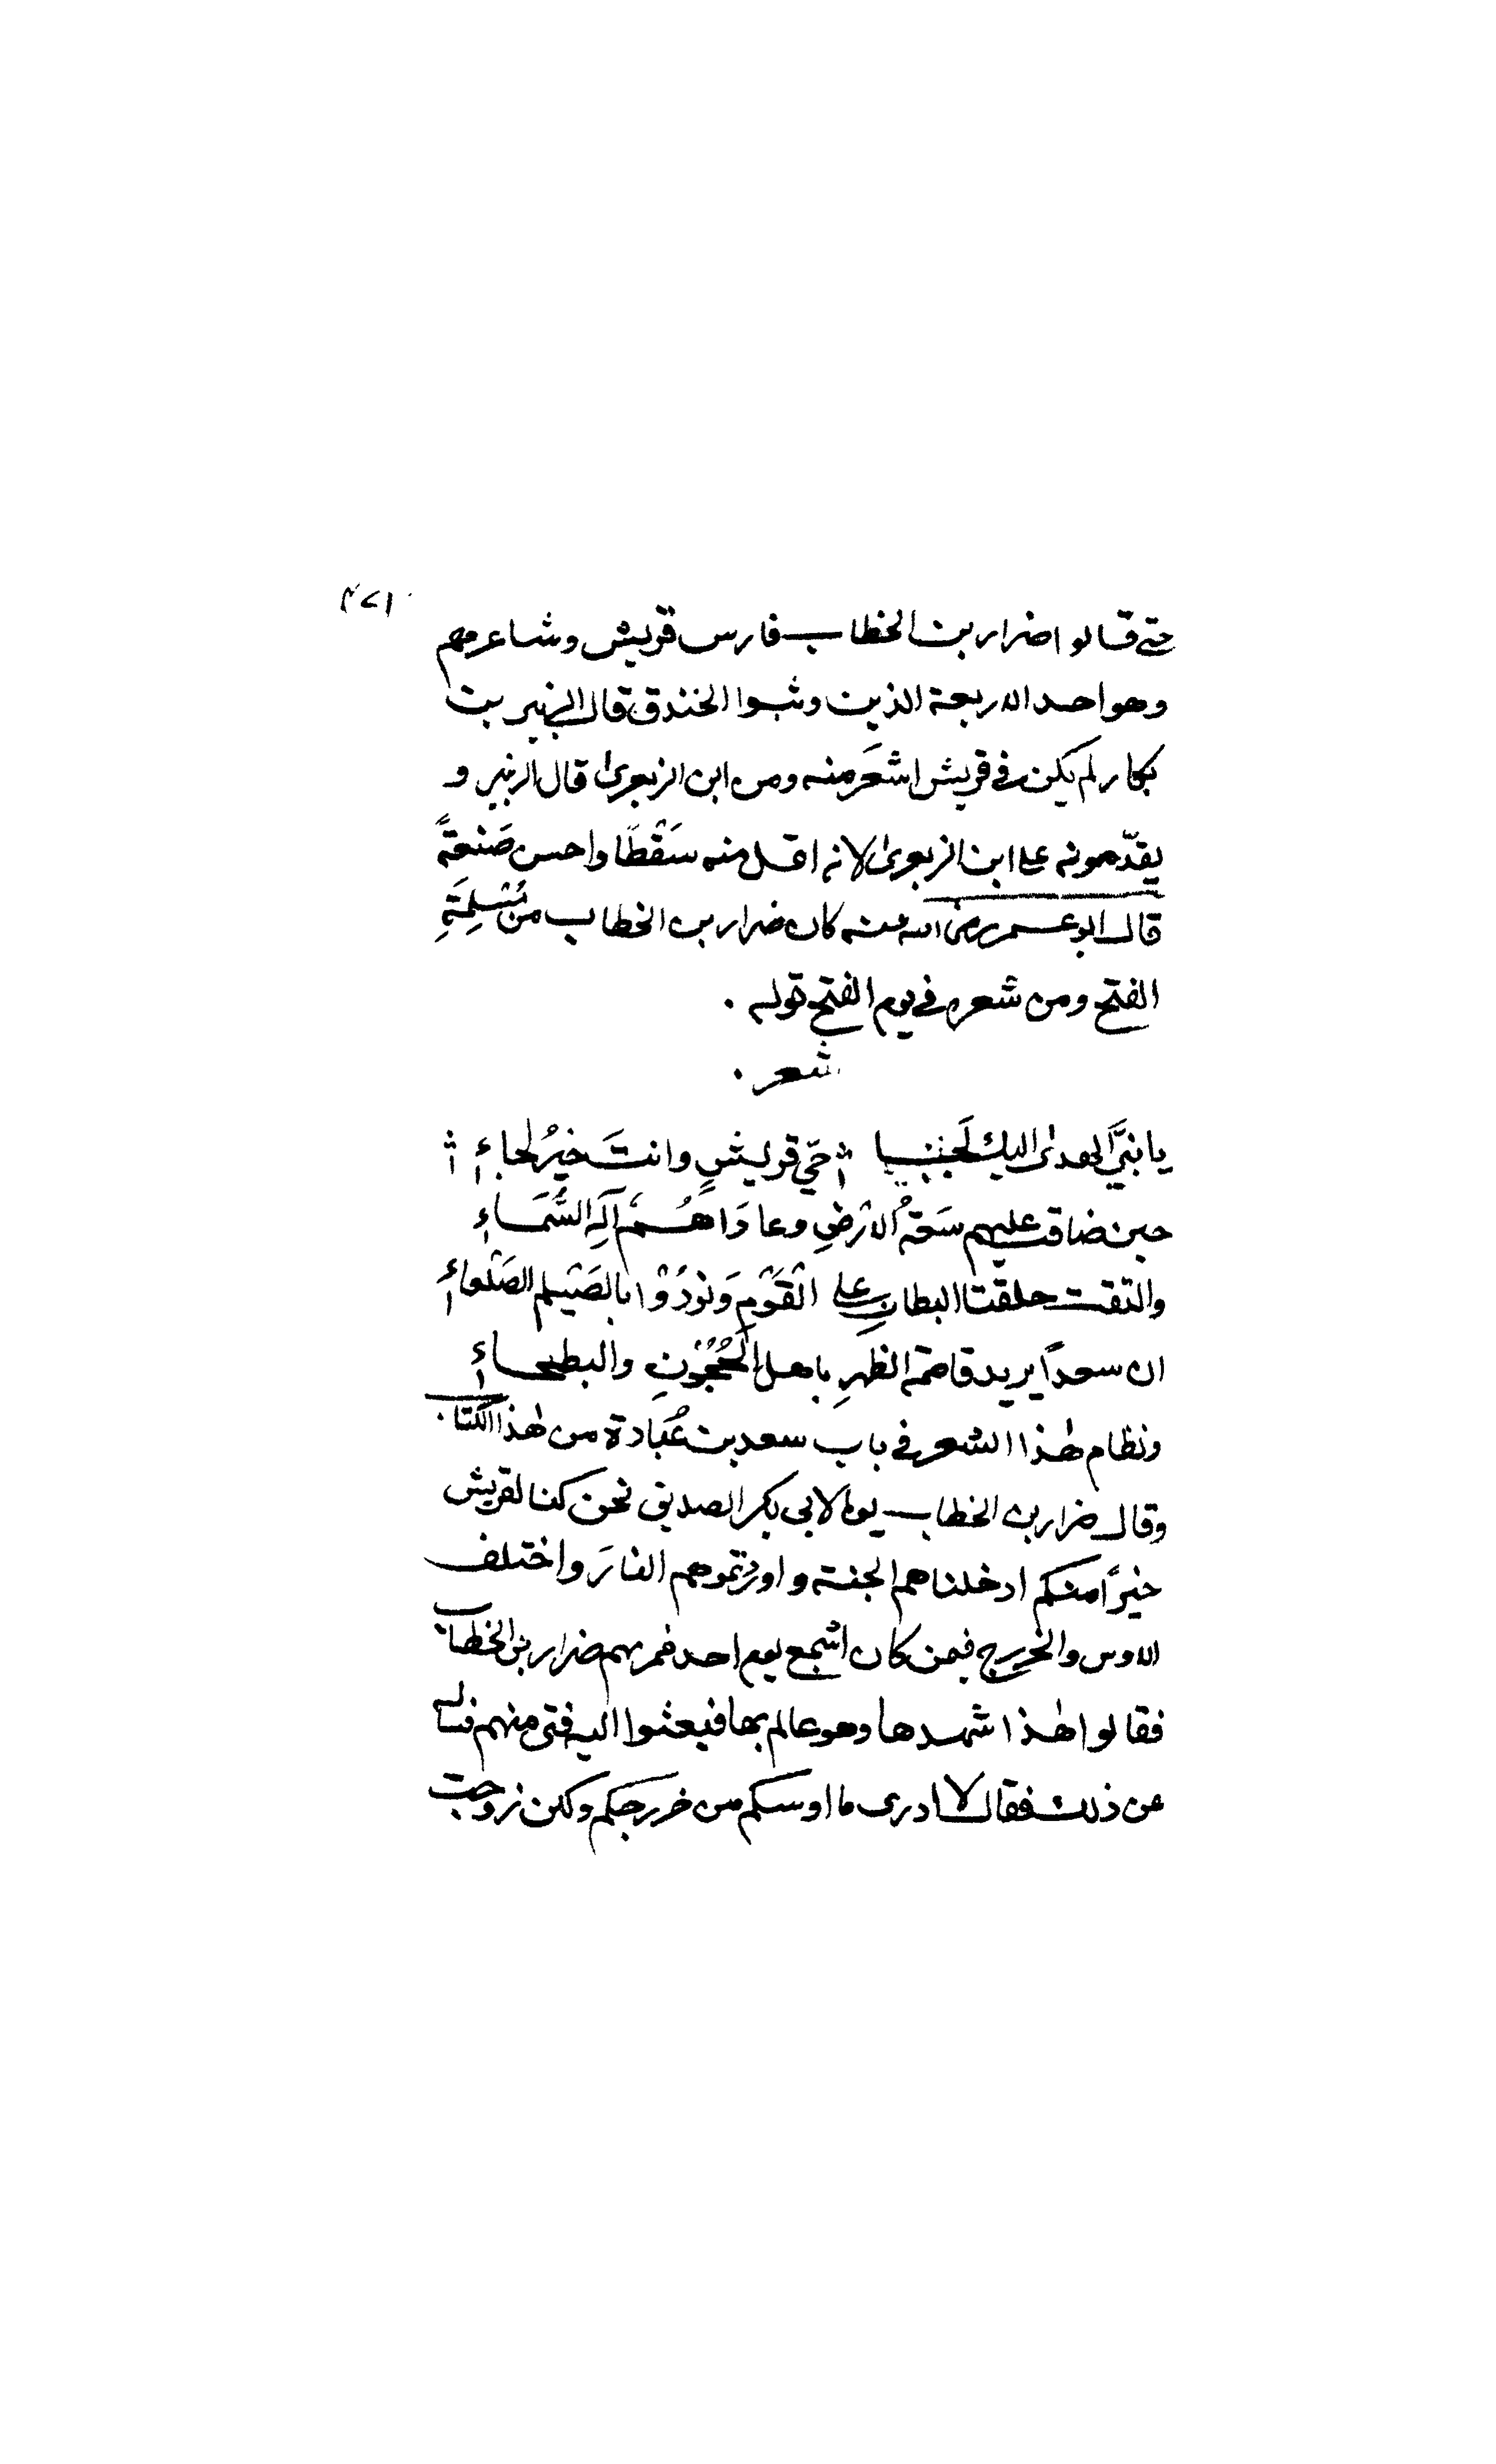 ٤٧١
حتى قالوا ضرار بن الخطاب فارس قريش وشاعرهم
وهو احد الاربعة الذين وثبوا الخندق قال الزبير بن
بكار لم يكن في قريش اشعَر منه ومن ابن الزبعرى قال الزبير و
يقدّمونه على ابن الزبعرى لانه اقل منه سَقْطًا واحسن صَنعةً
قال ابو عمر رضى الله عنه كان ضرار بن الخطاب من مُسْلِمَةِ
الفتح ومن شعره في يوم الفتح قوله .
شعر .
يا نبيَّ الهدىٰ اليك لَجَـا حَيّ قريشٍ وانتَ خيرُ لجاءِ
حين ضاقت عليهم سَعَةُ الارْضِ وعادَاهُمْ اله السَّمَاءِ
والتقت حلقتا البطانِ على القَوْمِ وَنُودُوْا بالصَيْلم الصَلْعاءِ
ان سعداً يريد قاصمة الظهرِ باهل الحُجُوْنِ والبطحاءِ
ونظام هٰذا الشعر في باب سعد بن عُبادة من هٰذا الكتاب
وقال ضرار بن الخطاب يوما لابى بكر الصديق نحن كنا لقريش
خيرًا منكم ادخلناهم الجنة و اوردتموهم النارَ واختلف
الاوس والخزرج فيمن كان اشجع يوم احد فمر بهم ضرار بن الخطاب
فقالوا هٰذا شهدها وهو عالم بها فبعثوا اليه فتى منهم فساله
عن ذلك فقال لا ادرى ما اوسكم من خزرجكم ولكن زوجت